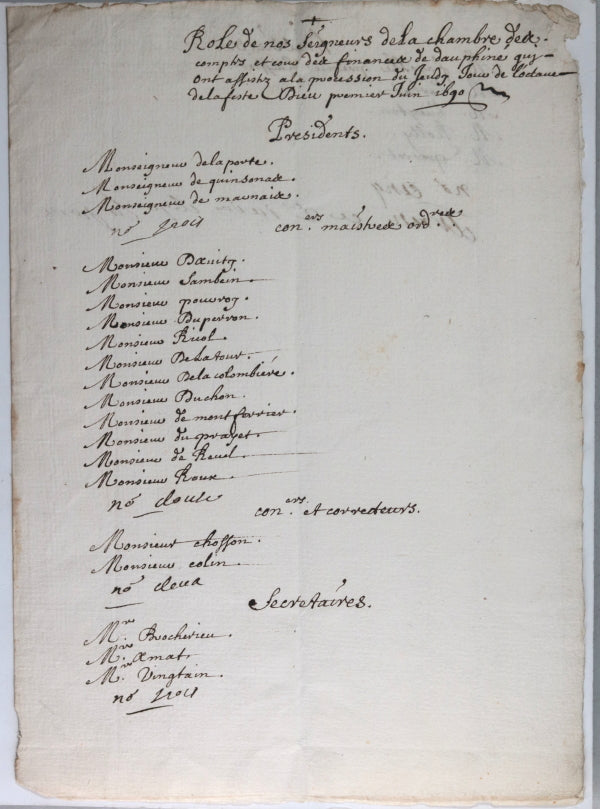 +
Role de nos Seigneurs de la chambre des
comptes et cour des finances de dauphine qui
ont assistez a la procession du Jeudy Jour de l'octaue
de la feste Dieu premier Juin 1690
Presidents.
Monseigneur delaporte.
Monseigneur de quinsonas.
Monseigneur de
nō trois
con.ers maistres ord.res
Monsieur
Monsieur Sambein.
Monsieur pourroy.
Monsieur Duperron.
Monsieur Riuol.
Monsieur DeLatour.
Monsieur Delacolombiere.
Monsieur Duchon.
Monsieur de montferrier.
Monsieur du prayet.
Monsieur de Reuel.
Monsieur Roux.
nō douse
con.ers et correcteurs.
Monsieur chosson.
Monsieur colin
nō deux
Secretaires.
M.re Brocherieu.
M.re Amat.
M.re Vingtain.
nō trois